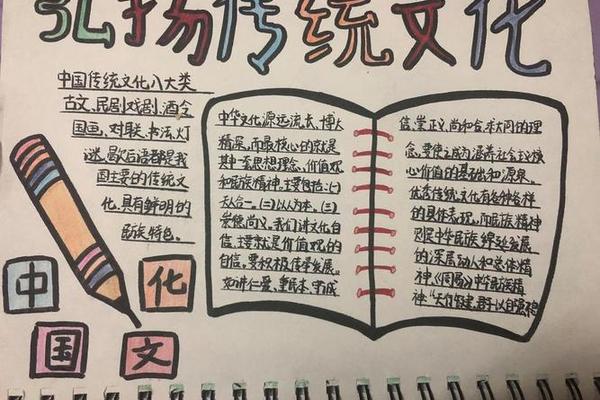 弘扬传统文化
中国传统文化八大类
古文、民剧戏剧、酒令
国画、对联、书法、灯
谜、歇后语都是我
国主要的传统文
化,具有鲜明的
民族特色。
中华文化源远流长、博大
精深,而最核心的就是
其中一系思想理念、价值观
和民族精神。主要包括:(一)
天人合一。(二)以人为本。(三)
我们讲文化自
信,主要就是价值观的
自信。要积极传
如讲仁爱、重民本、守诚
信、崇正义、尚和合、求大同的理
念,要使之成为涵养社会主义核
心价值观的基础和源泉。
优秀传统文化有各种各样
的具体表现,而民族精神
则是中华民族
的深层动人和总体精
神。《周易》中华民族精
神:“天行健,君子以自强不
中
化
国
文